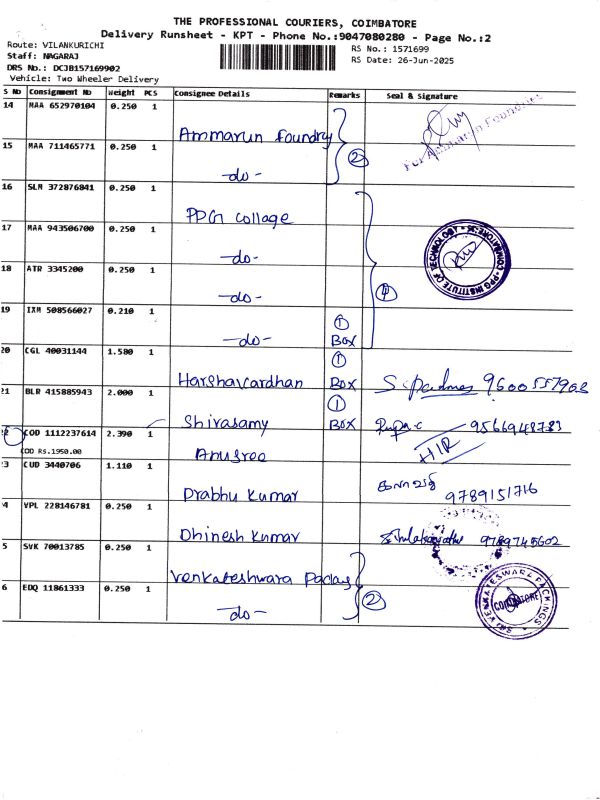 THE PROFESSIONAL COURIERS, COIMBATORE
Delivery Runsheet - KPT - Phone No.:9047080280 - Page No.:2
Route: VILANKURICHI
RS No.: 1571699
Staff: NAGARAJ
RS Date: 26-Jun-2025
DRS No.: DCJB157169902
Vehicle: Two Wheeler Delivery
S No Consignment No Weight PCS Consignee Details Remarks Seal & Signature
14 MAA 652970104 0.250 1
Ammarun Foundry
For Ammarun Foundries
15 MAA 711465771 0.250 1
2
-do-
16 SLM 372876841 0.250 1
PPG College
17 MAA 943506700 0.250 1
-do-
PPG INSTITUTE OF TECHNOLOGY COIMBATORE-35
18 ATR 3345200 0.250 1
-do-
4
19 IXM 508566027 0.210 1
1
-do- BOX
20 CGL 40031144 1.580 1
1
Harshavardhan BOX 9600557902
21 BLR 415885943 2.000 1
1
Shivasamy BOX 9566948783
22 COD 1112237614 2.390 1
COD RS.1950.00
Anusree
23 CUD 3440706 1.110 1
Prabhu Kumar 9789151716
24 VPL 228146781 0.250 1
Dhinesh Kumar 9789745602
25 SVK 70013785 0.250 1
Venkateshwara
26 EDQ 11861333 0.250 1
2
-do-
SRI VENKATESWARA PACKINGS COIMBATORE